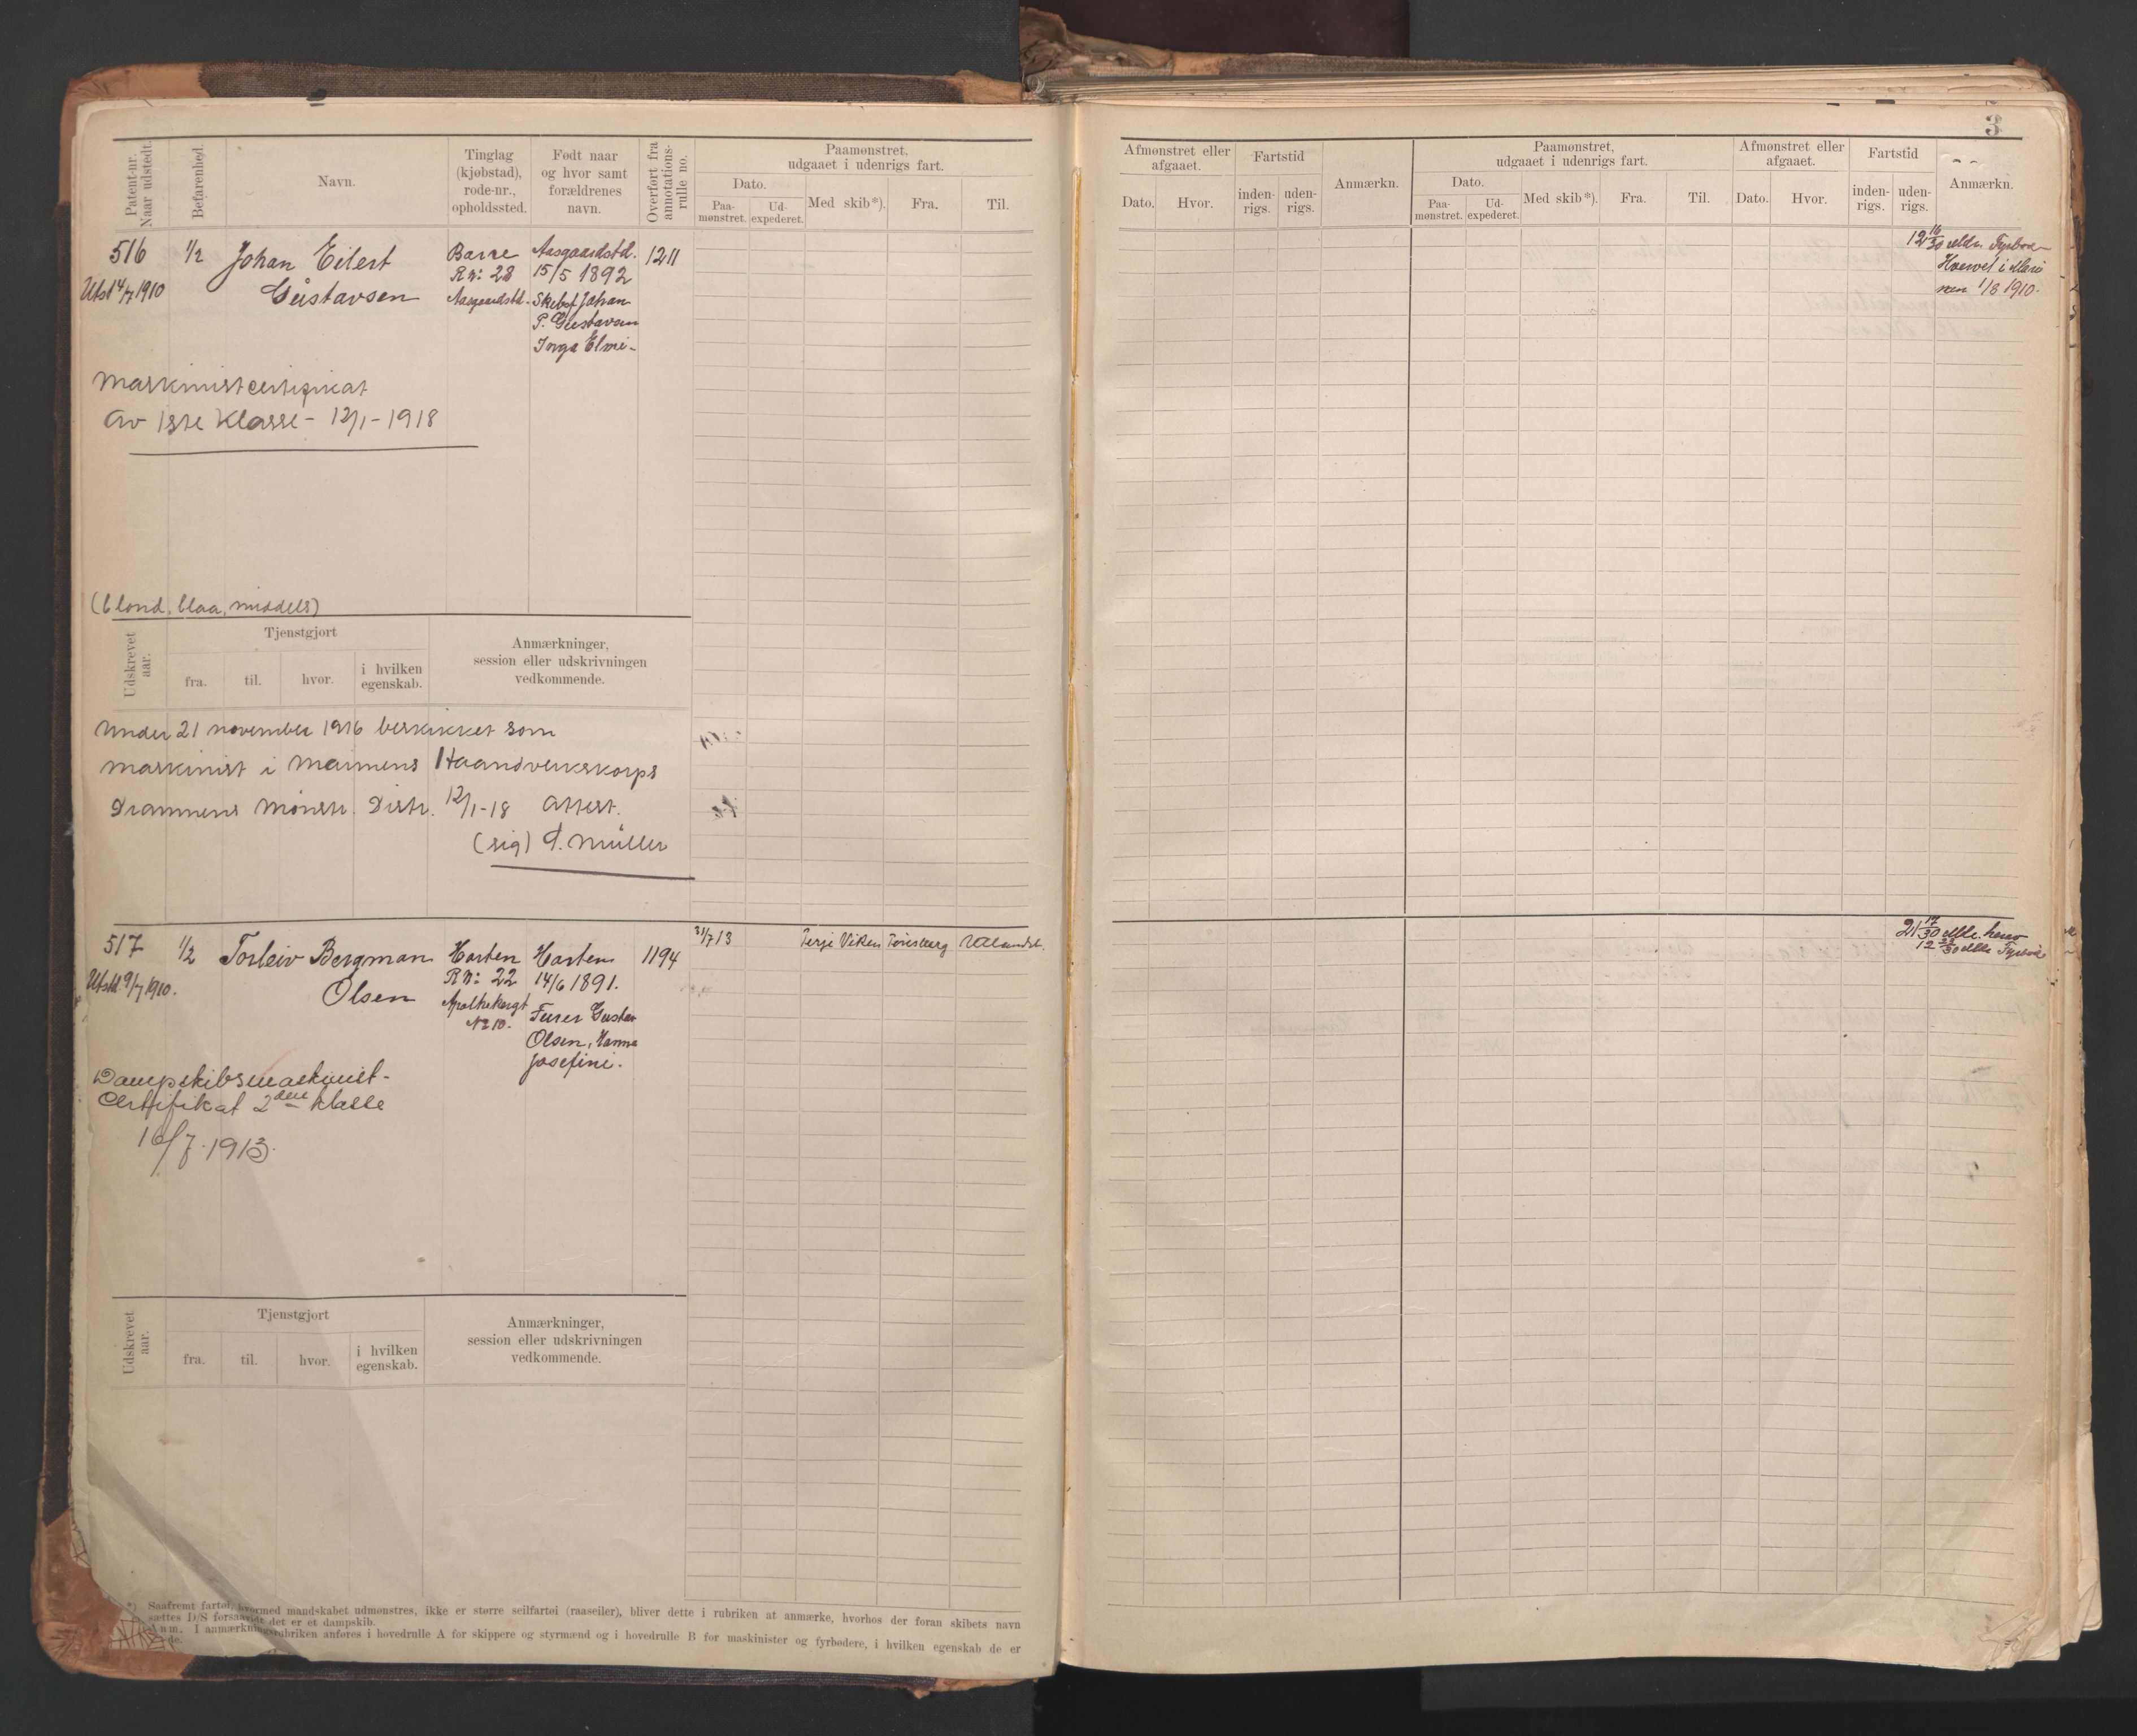 3
Patent-nr.
Naar udstedt.
Befarenhed.
Navn.
Tinglag
(kjøbstad),
rode-nr.,
opholdssted.
Født naar
og hvor samt
forældrenes
navn.
Overført fra
annotations-
rulle no.
Paamønstret,
udgaaet i udenrigs fart.
Dato.
Paa-
mønstret.
Ud-
expederet.
Med skib*).
Fra.
Til.
Afmønstret eller
afgaaet.
Dato.
Hvor.
Fartstid
inden-
rigs.
uden-
rigs.
Anmærkn.
Paamønstret,
udgaaet i udenrigs fart.
Dato.
Paa-
mønstret.
Ud-
expederet.
Med skib*).
Fra.
Til.
Afmønstret eller
afgaaet.
Dato.
Hvor.
Fartstid
inden-
rigs.
uden-
rigs.
Anmærkn.
516
Utst 14/7 1910
1/2
Johan Eilert
Gustavsen
Borre
R N: 28
Aasgaardstd.
Aasgaardstd.
15/5 1892
Johan
P. Gustavsen
Inga
1211
12 16/30
Hvervet i Mari
nen 1/8 1910.
Maskinistcertifikat
Av 1ste Klasse - 12/1 - 1918
(blond, blaa, middels)
Udskrevet
aar.
Tjenstgjort
fra.
til.
hvor.
i hvilken
egenskab.
Anmærkninger,
session eller udskrivningen
vedkommende.
Under 21 november 1916 beskikket som
maskinist i Marinens Haandverkskorps
Drammens Mønstr. Distr. 12/1-18 Attest.
(sig) Müller
517
Utstd 9/7 1910.
1/2
Torleiv Bergman
Olsen
Horten
R N: 22
Apothekergt
No 10.
Horten
14/6 1891.
Gustav
Olsen, Hanna
Josefine.
1194
31/7 13
Terje Viken Tønsberg
21 17/30
12 /30
Dampskibsmaskinist-
Certifikat 2den Klasse
16/7. 1913.
Udskrevet
aar.
Tjenstgjort
fra.
til.
hvor.
i hvilken
egenskab.
Anmærkninger,
session eller udskrivningen
vedkommende.
*) Saafremt fartøi, hvormed mandskabet udmønstres, ikke er større seilfartøi (raaseiler), bliver dette i rubriken at anmærke, hvorhos der foran skibets navn
sættes D/S forsaavidt det er et dampskib.
Anm. I anmærkningsrubriken anføres i hovedrulle A for skippere og styrmænd og i hovedrulle B for maskinister og fyrbødere, i hvilken egenskab de er